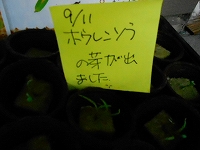 9/11
ホウレンソウ
の芽が出
ました。